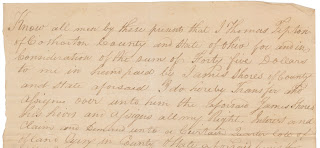 Know all men by these present that I Thomas Tipton
of Coshocton County and State of Ohio for and in
Consideration of the sum of Forty five Dollars
to me in hand paid by James Shores of County
and State aforesaid I do hereby Transfer and
assign over unto him the aforesaid James Shores
his heirs and assigns all my Right Interest and
Claim unto a Certain lot of
County & State